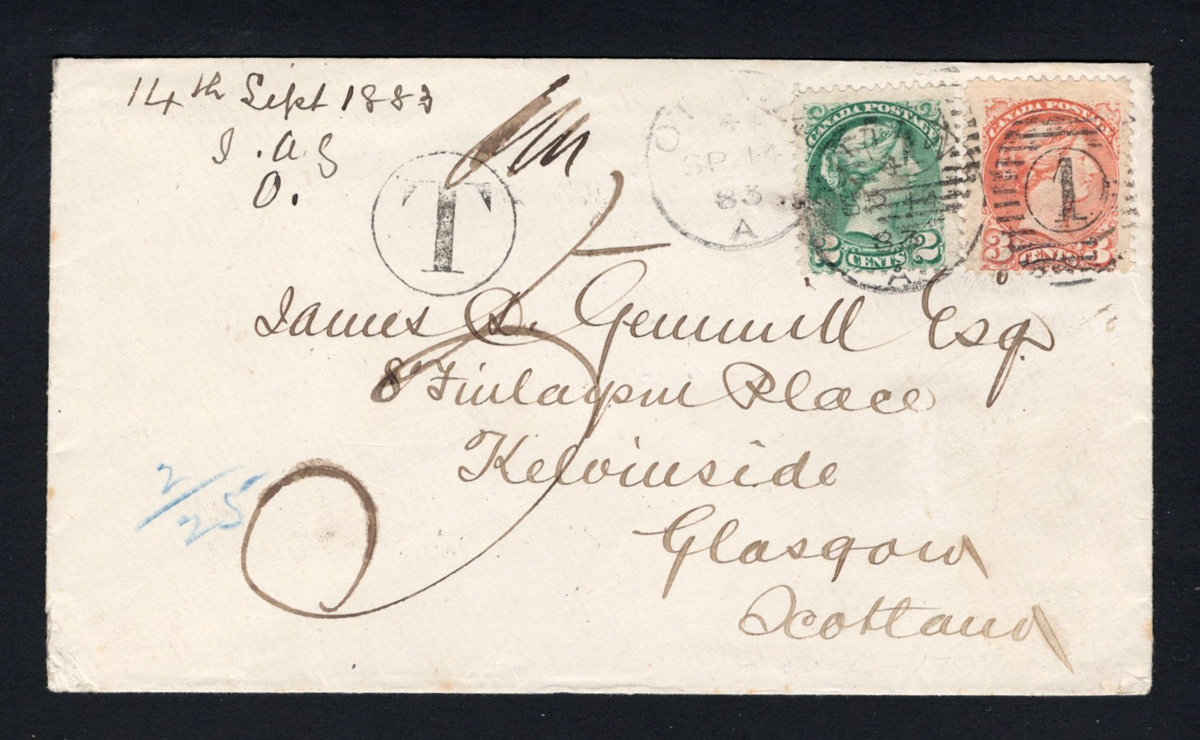 14th Sept 1883
J.A.G
O.
T
SP 14
83
A
CANADA POSTAGE
2 CENTS 2
CANADA POSTAGE
1
3 CENTS 3
James D. Gemmill Esq.
8 Finlayson Place
Kelvinside
Glasgow
Scotland
2/25
5